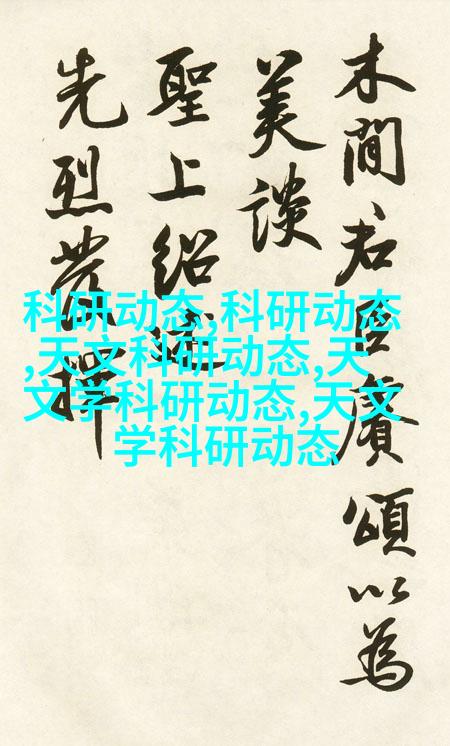 木間君臣賡頌以為
美談
聖上紹述
先烈發揮
科研动态,科研动态
,天文科研动态,天
文学科研动态,天文
学科研动态